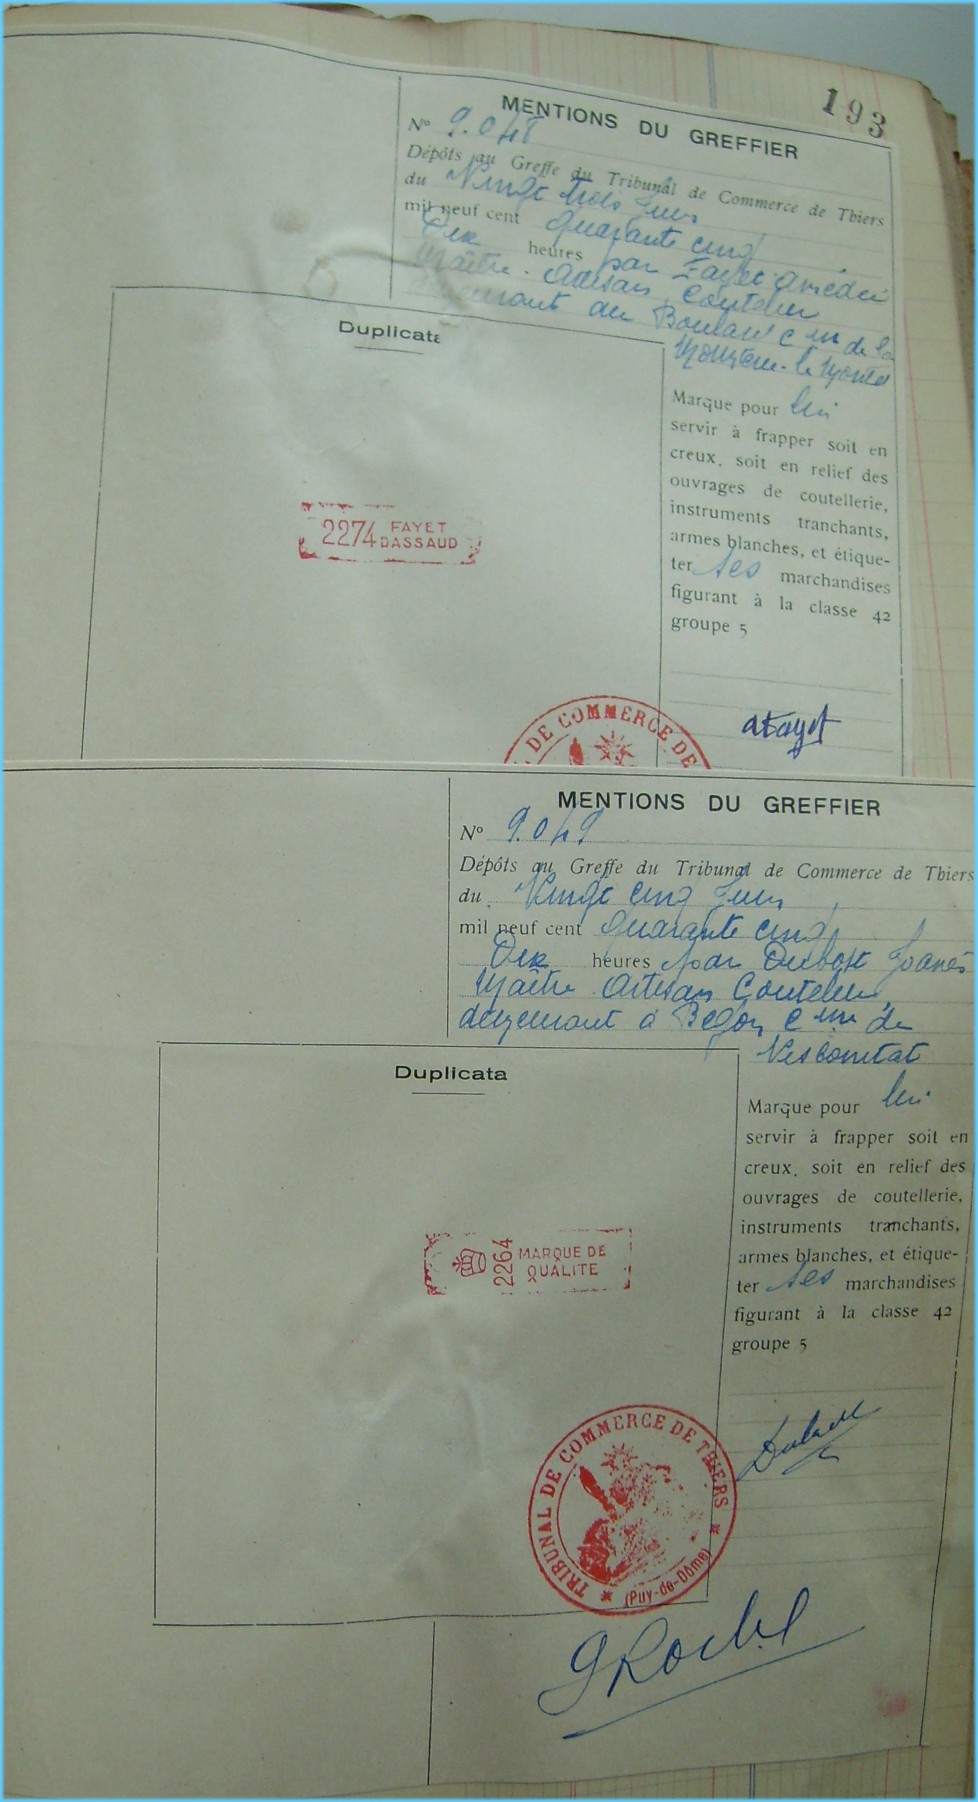 193
MENTIONS DU GREFFIER
N° 9.048
Dépôts au Greffe du Tribunal de Commerce de Thiers
du Vingt trois Juin
mil neuf cent quarante cinq
Dix heures par Fayet Amédée
Maître Artisan Coutelier
demeurant au c ne de la
Duplicata
Marque pour lui
servir à frapper soit en
creux, soit en relief des
ouvrages de coutellerie,
instruments tranchants,
armes blanches, et étique-
ter ses marchandises
figurant à la classe 42
groupe 5
2274 FAYET
DASSAUD
DE COMMERCE DE
aFayet
MENTIONS DU GREFFIER
N° 9.049
Dépôts au Greffe du Tribunal de Commerce de Thiers
du Vingt cinq Juin
mil neuf cent quarante cinq
Dix heures par Dubost Joanès
Maître Artisan Coutelier
demeurant à Begon c ne de
Viscomtat
Duplicata
Marque pour lui
servir à frapper soit en
creux, soit en relief des
ouvrages de coutellerie,
instruments tranchants,
armes blanches, et étique-
ter ses marchandises
figurant à la classe 42
groupe 5
2264 MARQUE DE
QUALITE
TRIBUNAL DE COMMERCE DE THIERS
(Puy-de-Dôme)